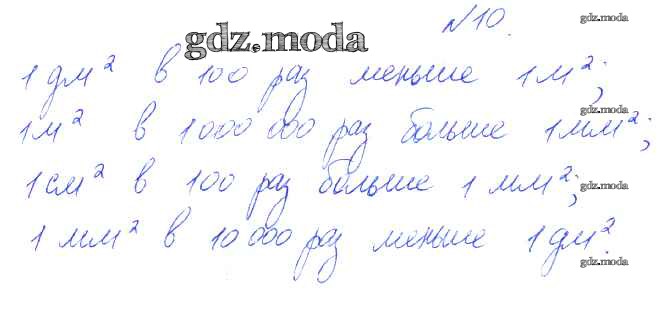 №10.
gdz.moda
gdz.moda
1 дм² в 100 раз меньше 1 м²;
gdz.moda
1 м² в 1000 000 раз больше 1 мм²;
1 см² в 100 раз больше 1 мм²;
gdz.moda
1 мм² в 10 000 раз меньше 1 дм².
gdz.moda